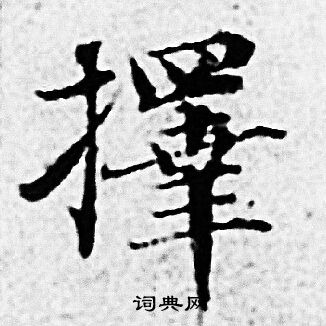 擇
词典网